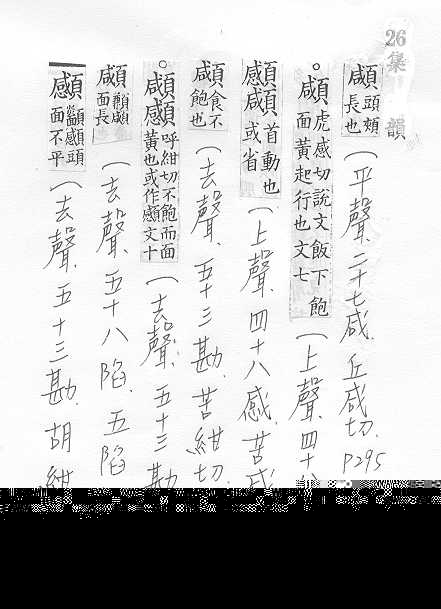 26集韻
顑 頭頰長也(平聲.二十七咸.丘咸切.P295
。顑 虎感切說文飯下飽面黃起行也文七(上聲.四十八
顑 首動也或省(上聲.四十八感.苦感
顑 食不飽也(去聲.五十三勘.苦紺切.
。顑 呼紺切不飽而面黃也或作文十(去聲.五十三勘
顑 面長(去聲.五十八陷.五陷
頭面不平(去聲.五十三勘.胡紺